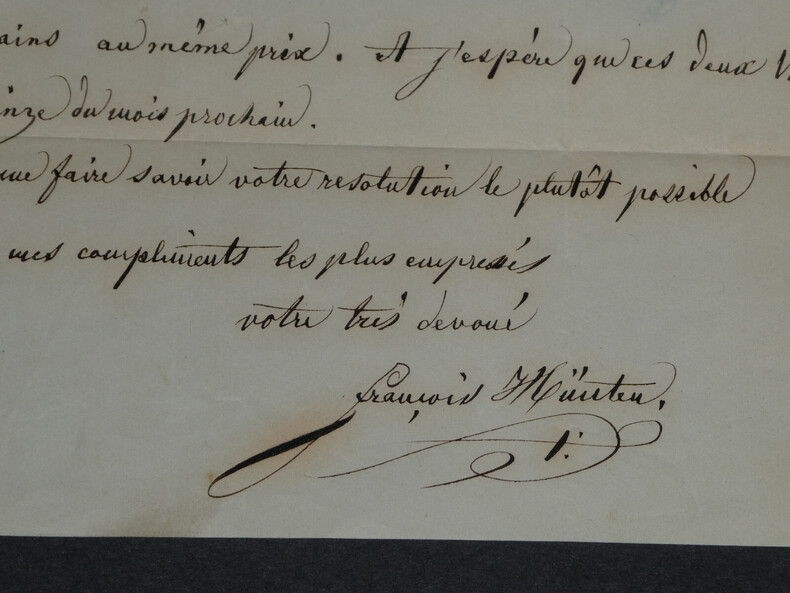 ains au même prix. Et j'espère que ces deux V
inze du mois prochain.
me faire savoir votre resolution le plutôt possible
mes compliments les plus empressés
votre très devoué
François Hünten.